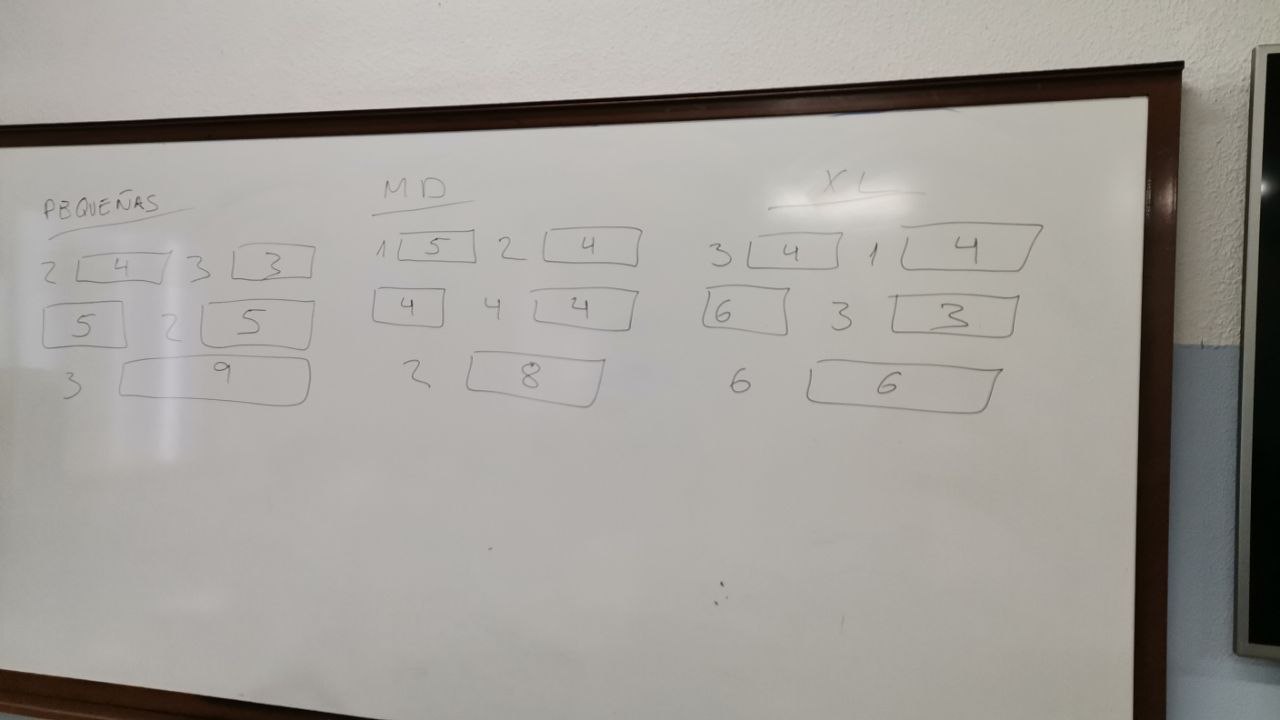 PEQUEÑAS
2 4 3 3
5 2 5
3 9
MD
1 5 2 4
4 4 4
2 8
XL
3 4 1 4
6 3 3
6 6